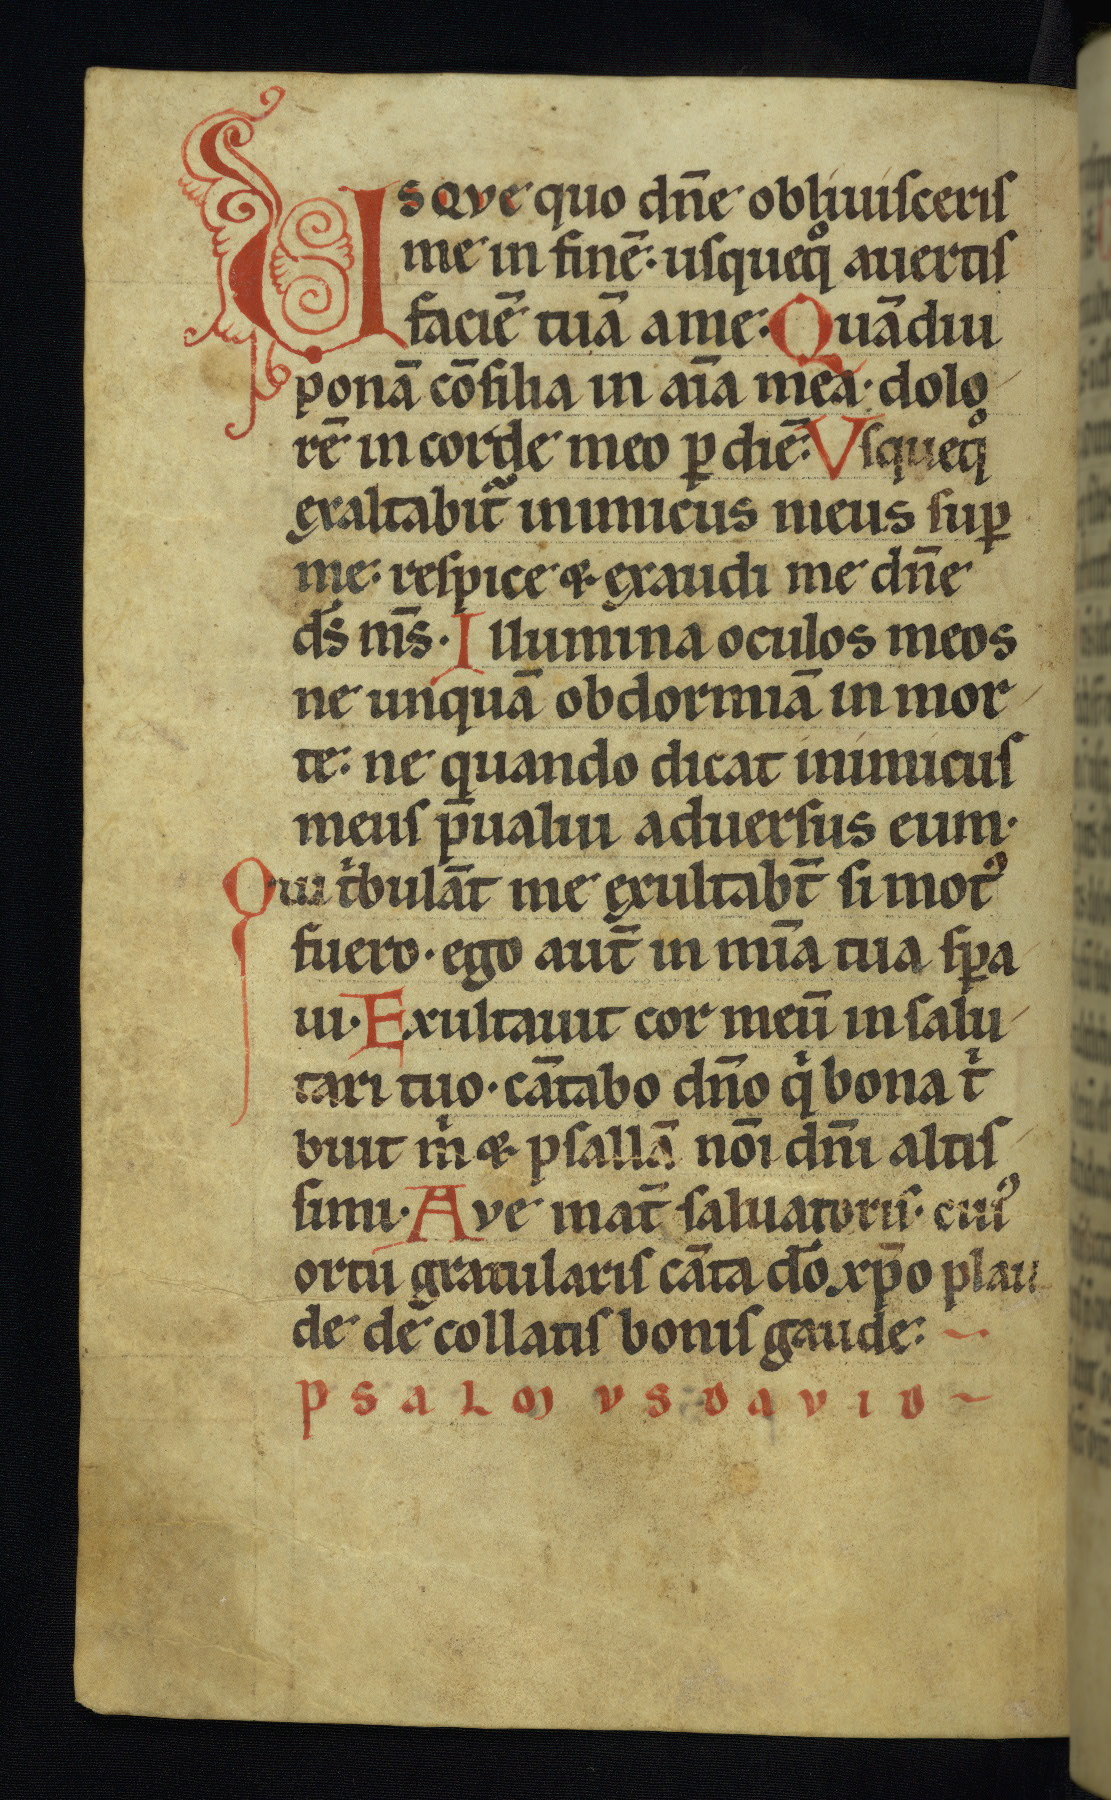 Usque quo dn̄e obliuisceris
me in finē· usqueqͦ auertis
faciē tuā a me: Quādiu
ponā cōsilia in aīa mea· dolo
rē in corde meo ꝑ diē: Vsqueqͦ
exaltabit᷑ inimicus meus suꝑ
me: respice & exaudi me dn̄e
ds̄ ms̄· Illumina oculos meos
ne unquā obdormiā in mor
te: ne quando dicat inimicus
meus p̄ualui aduersus eum·
Qui tͥbulāt me exultabt̄ si motꝰ
fuero· ego aut̄ in mīa tua sꝑa
ui· Exultauit cor meū in salu
tari tuo· cātabo dn̄o qͥ bona tͥ
buit mͥ & psallā nōi dn̄i altis
simi· Aue mat̄ saluatoris· cuiꝰ
ortu gratularis cāta dō xp̄o plau
de de collatis bonis gaude:
PSALMVS DAVID